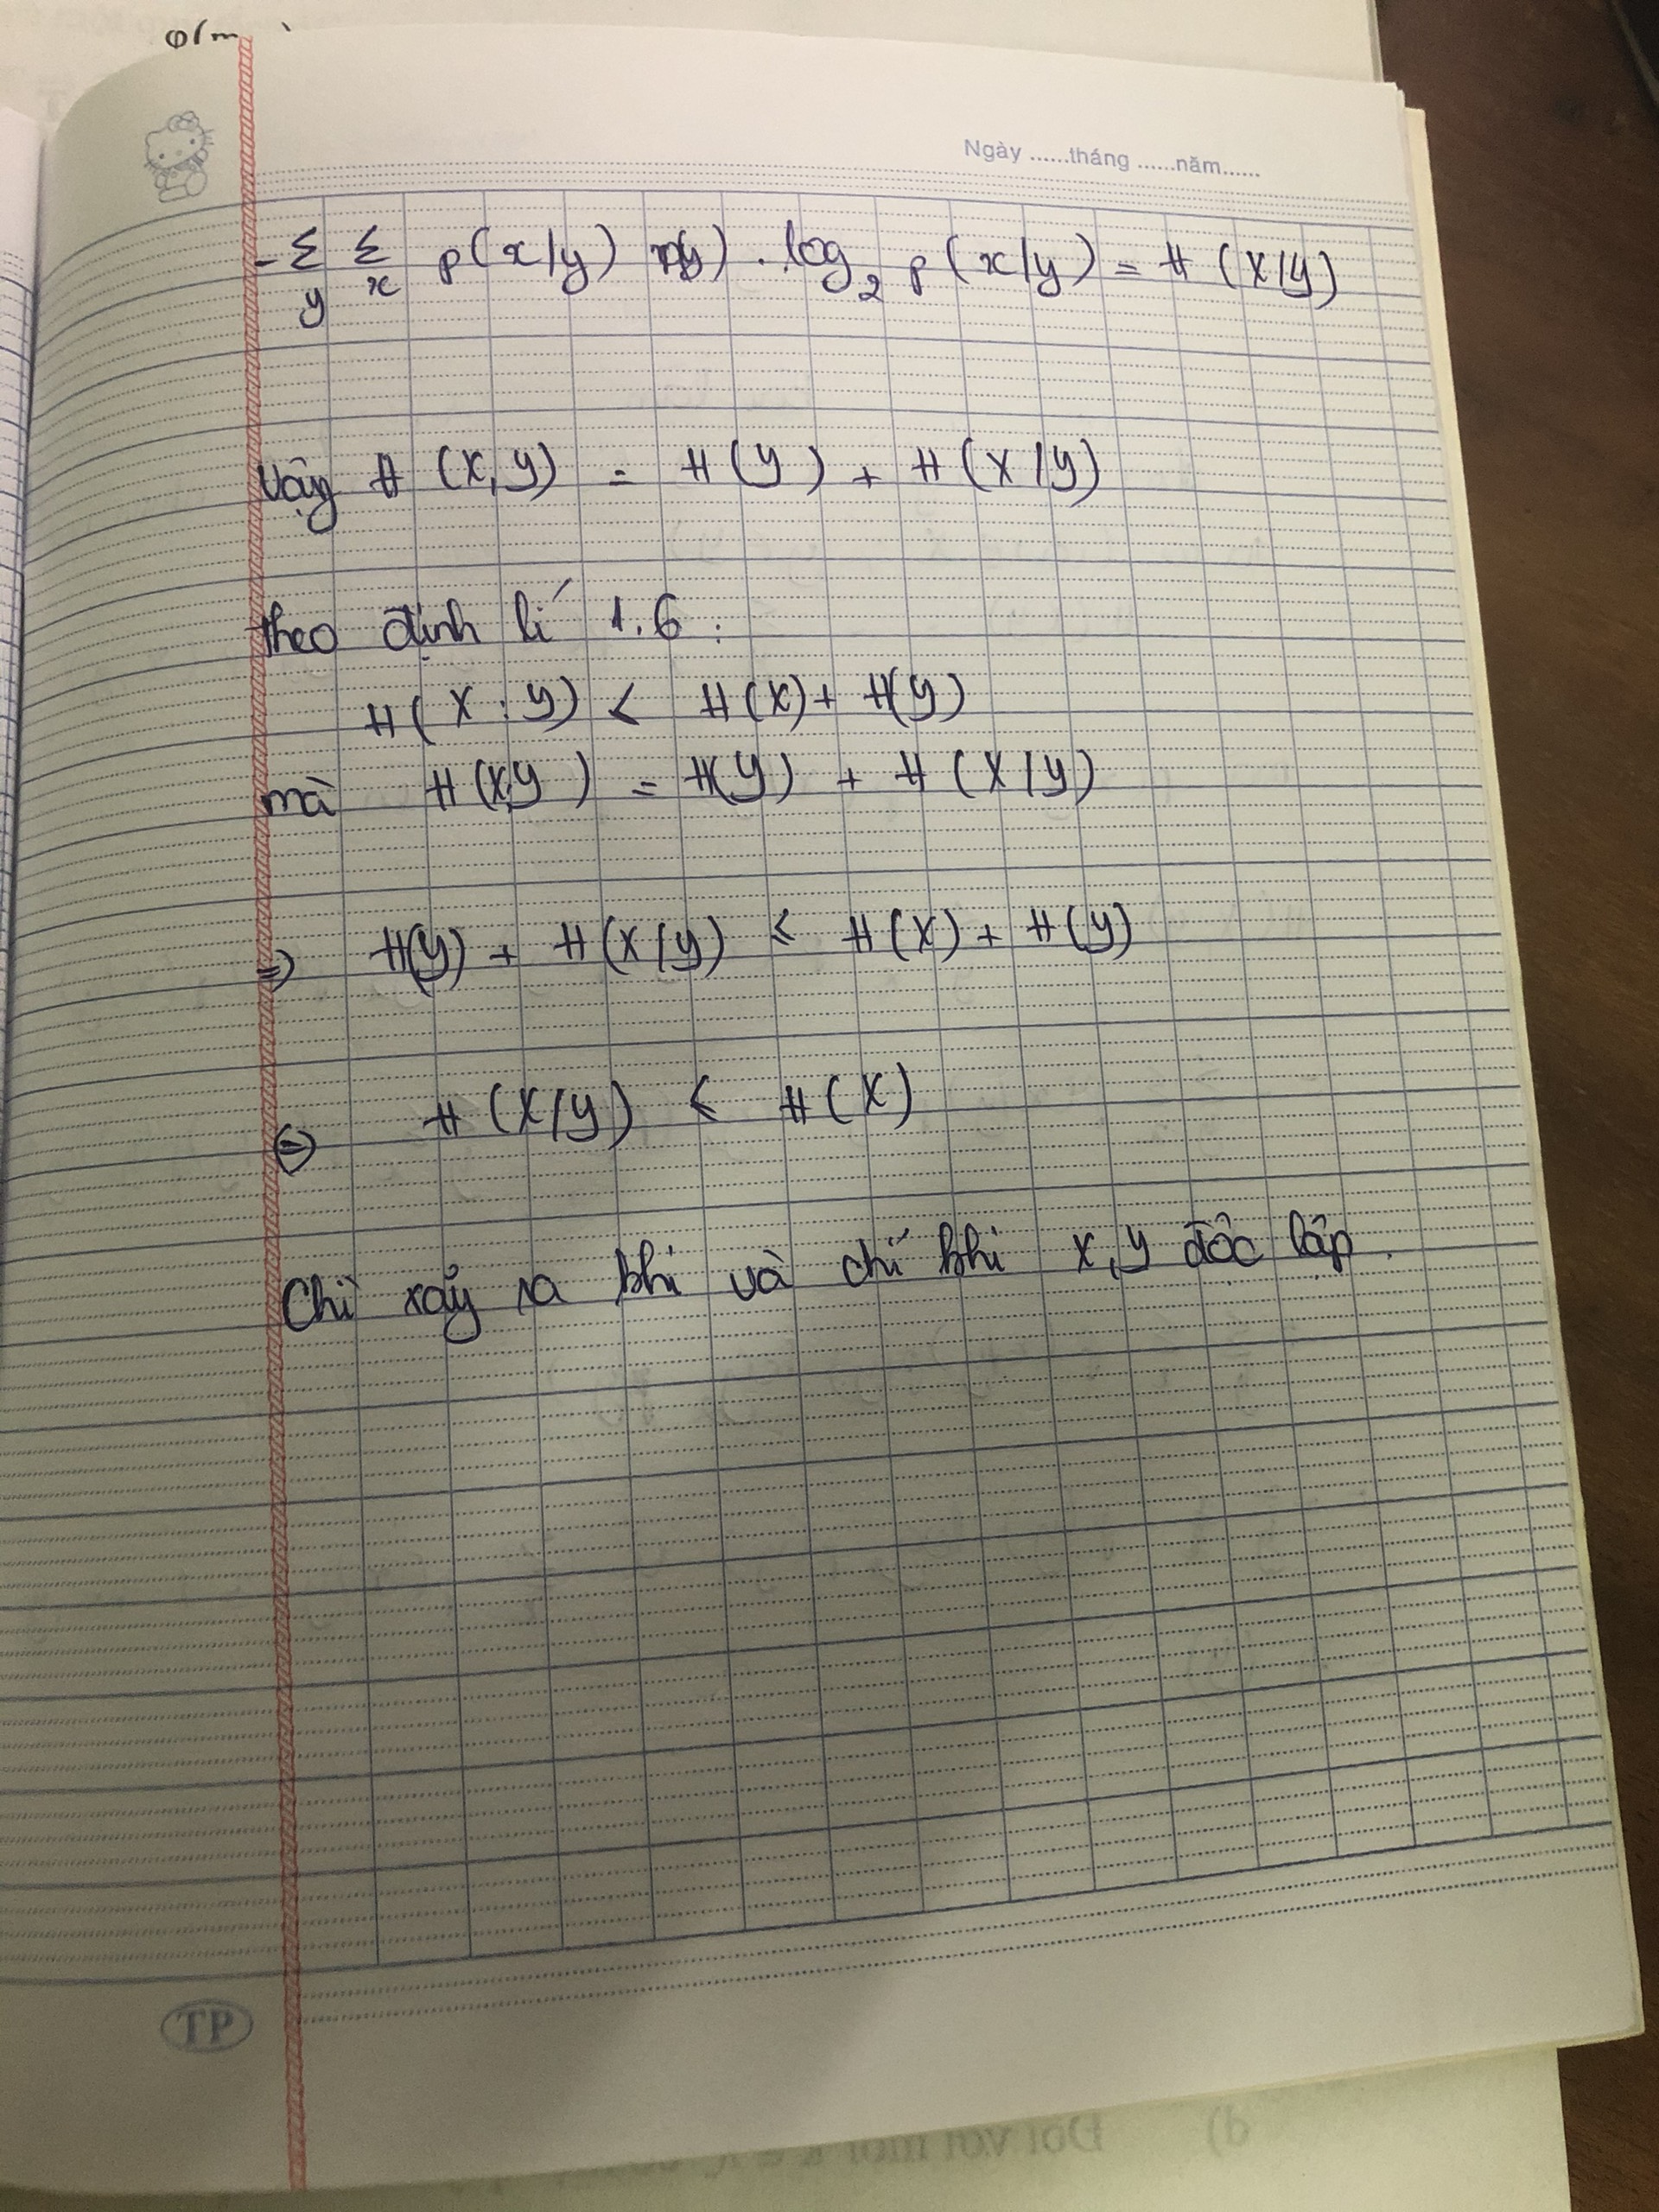 Ngày ......tháng ......năm......
-Σ Σ p(x/y) p(y) . log₂ p(x/y) = H(X/Y)
y x
Vậy H(X,Y) = H(Y) + H(X/Y)
theo định lí 1.6 :
H(X ; Y) ≤ H(X) + H(Y)
mà H(X,Y) = H(Y) + H(X/Y)
=> H(Y) + H(X/Y) ≤ H(X) + H(Y)
<=> H(X/Y) ≤ H(X)
Chỉ xảy ra khi và chỉ khi X,Y độc lập.
TP
d) Đối với mỗi